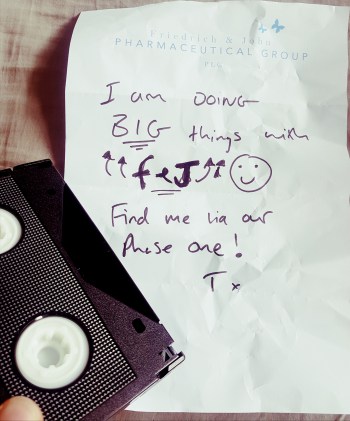 Friedrich & John
PHARMACEUTICAL GROUP
PLC
I am DOING
BIG things with
↑↑ f&J ↑↑ ☺
Find me via our
Phase one!
T x